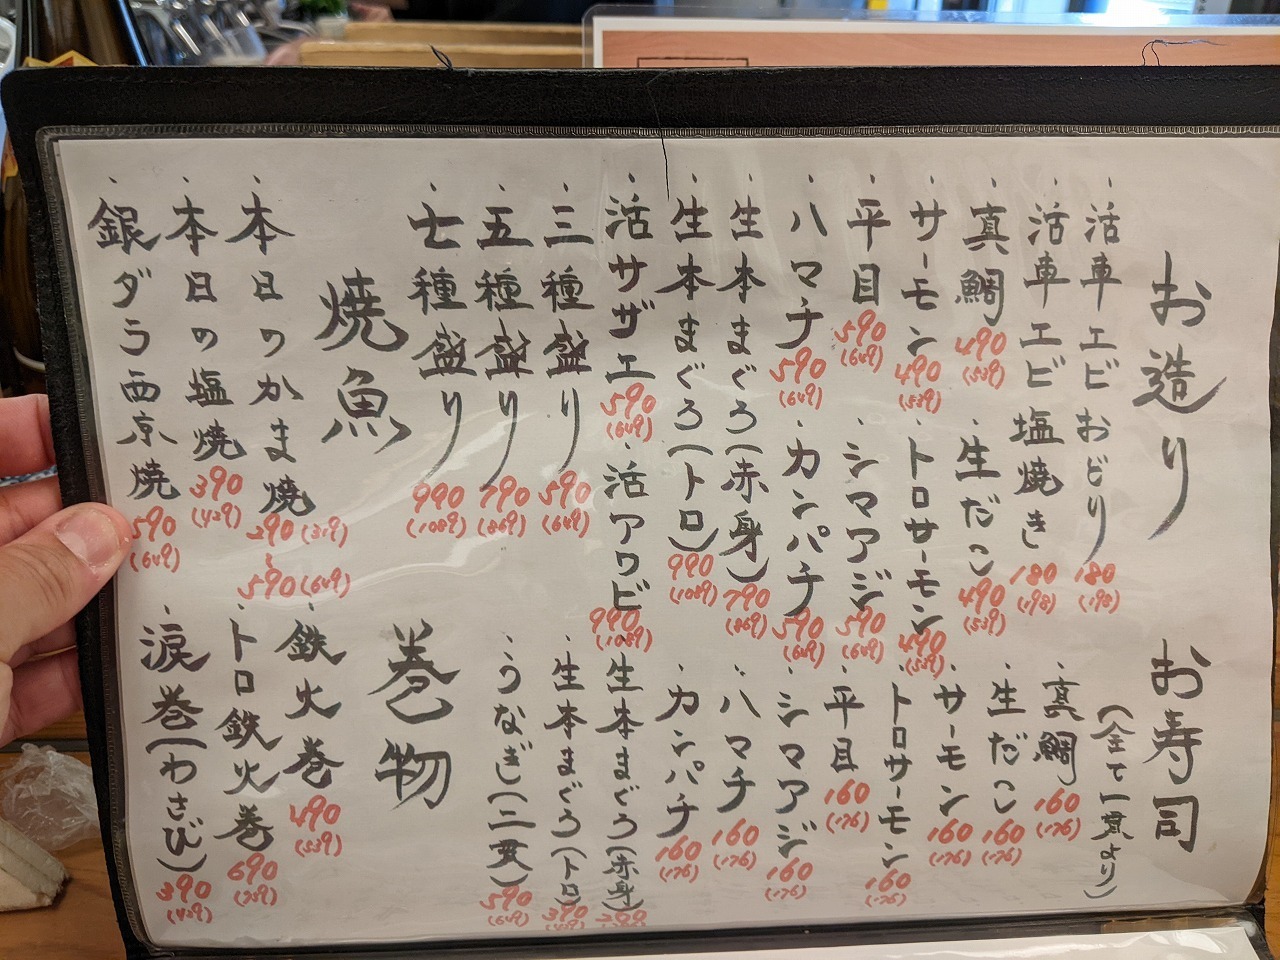 お造り
・活車エビおどり 180 (198)
・活車エビ塩焼き 180 (198)
・真鯛 490 (539)
・生だこ 490 (539)
・サーモン 490 (539)
・トロサーモン 490 (539)
・平目 590 (649)
・シマアジ 590 (649)
・ハマチ 590 (649)
・カンパチ 590 (649)
・生本まぐろ(赤身) 790 (869)
・生本まぐろ(トロ) 990 (1089)
・活サザエ 590 (649)
・活アワビ 990 (1089)
・三種盛り 590 (649)
・五種盛り 790 (869)
・七種盛り 990 (1089)
焼魚
・本日のかま焼 290 (319) 〜 590 (649)
・本日の塩焼 390 (429)
・銀ダラ西京焼 590 (649)
お寿司
(全て一貫より)
・真鯛 160 (176)
・生だこ 160 (176)
・サーモン 160 (176)
・トロサーモン 160 (176)
・平目 160 (176)
・シマアジ 160 (176)
・ハマチ 160 (176)
・カンパチ 160 (176)
・生本まぐろ(赤身)
・生本まぐろ(トロ) 390 (429)
・うなぎ(二貫) 590 (649)
巻物
・鉄火巻 490 (539)
・トロ鉄火巻 690 (759)
・涙巻(わさび) 390 (429)